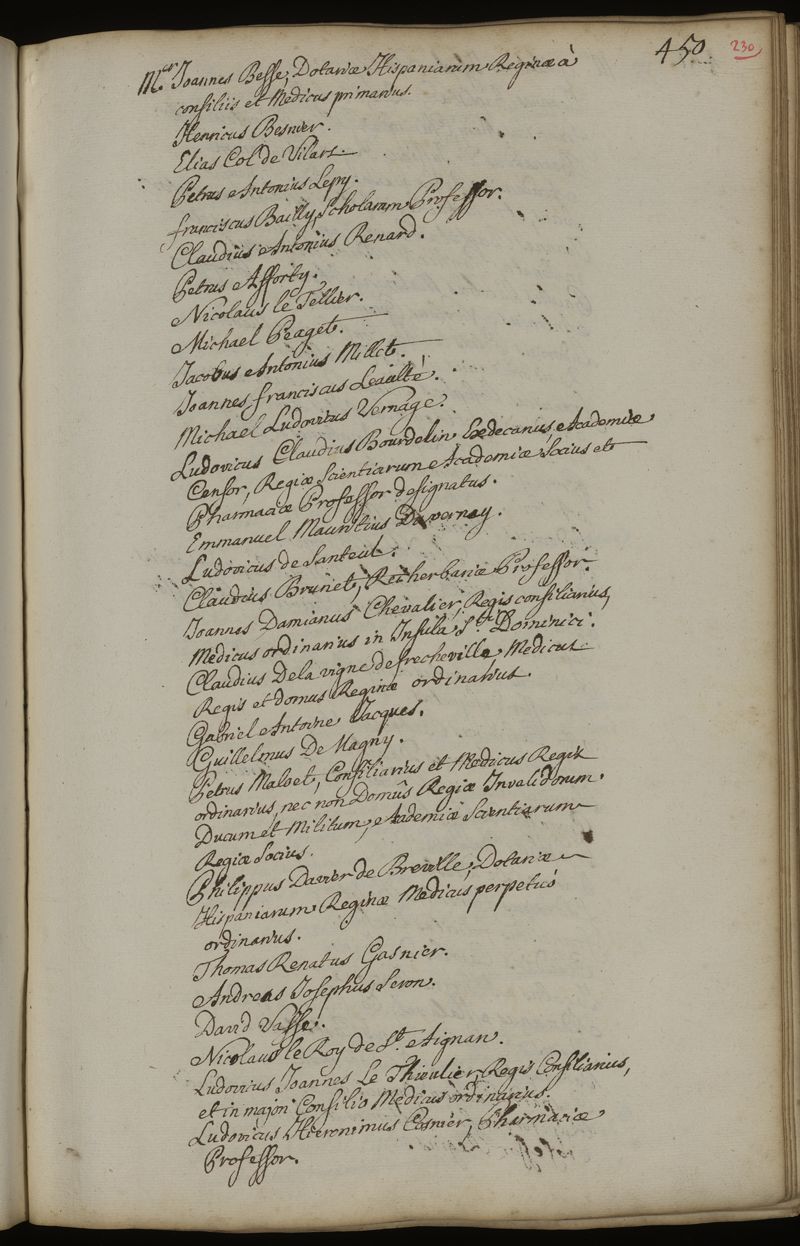 450 230
M.gr Joannes Besse, Dotariæ Hispaniarum Reginæ à
consiliis et Medicus primarius.
Henricus Besnier.
Elias Col de Vilars.
Petrus Antonius Lepy.
franciscus Bailly, Scholarum Professor.
Claudius Antonius Renard.
Petrus Afforty.
Nicolaus le Tellier.
Michael Peaget.
Jacobus Antonius Millet.
Joannes franciscus Leaulté.
Michael Ludovicus Vernage.
Ludovicus Claudius Bourdelin Exdecanus, Academiæ
Censor, Regiæ Scientiarum Academiæ Socius et
Pharmaciæ Professor designatus.
Emmanuel Mauritius Duverney.
Ludovicus de Santeul.
Claudius Brunet, Rei herbariæ Professor.
Joannes Damianus Chevalier, Regis consiliarius,
Medicus ordinarius in Insula S.ti Dominici.
Claudius Delavigne de frecheville, Medicus
Regis et domus Reginæ ordinarius.
Gabriel Antoine Jacques.
Guillelmus De Magny.
Petrus Maloet, Consiliarius et Medicus Regis
ordinarius, nec non Domûs Regiæ Invalidorum
Ducum et Militum, Academiæ Scientiarum
Regiæ Socius.
Philippus Davier de Breville, Dotariæ
Hispaniarum Reginæ Medicus perpetuò
ordinarius.
Thomas Renatus Gasnier.
Andreas Josephus Seron.
David Vasse.
Nicolaus le Roy de St. Aignan.
Ludovicus Joannes Le Thieulier, Regis Consiliarius,
et in majori Consilio Medicus ordinarius.
Ludovicus Hieronimus Cosnier, Pharmaciæ
Professor.